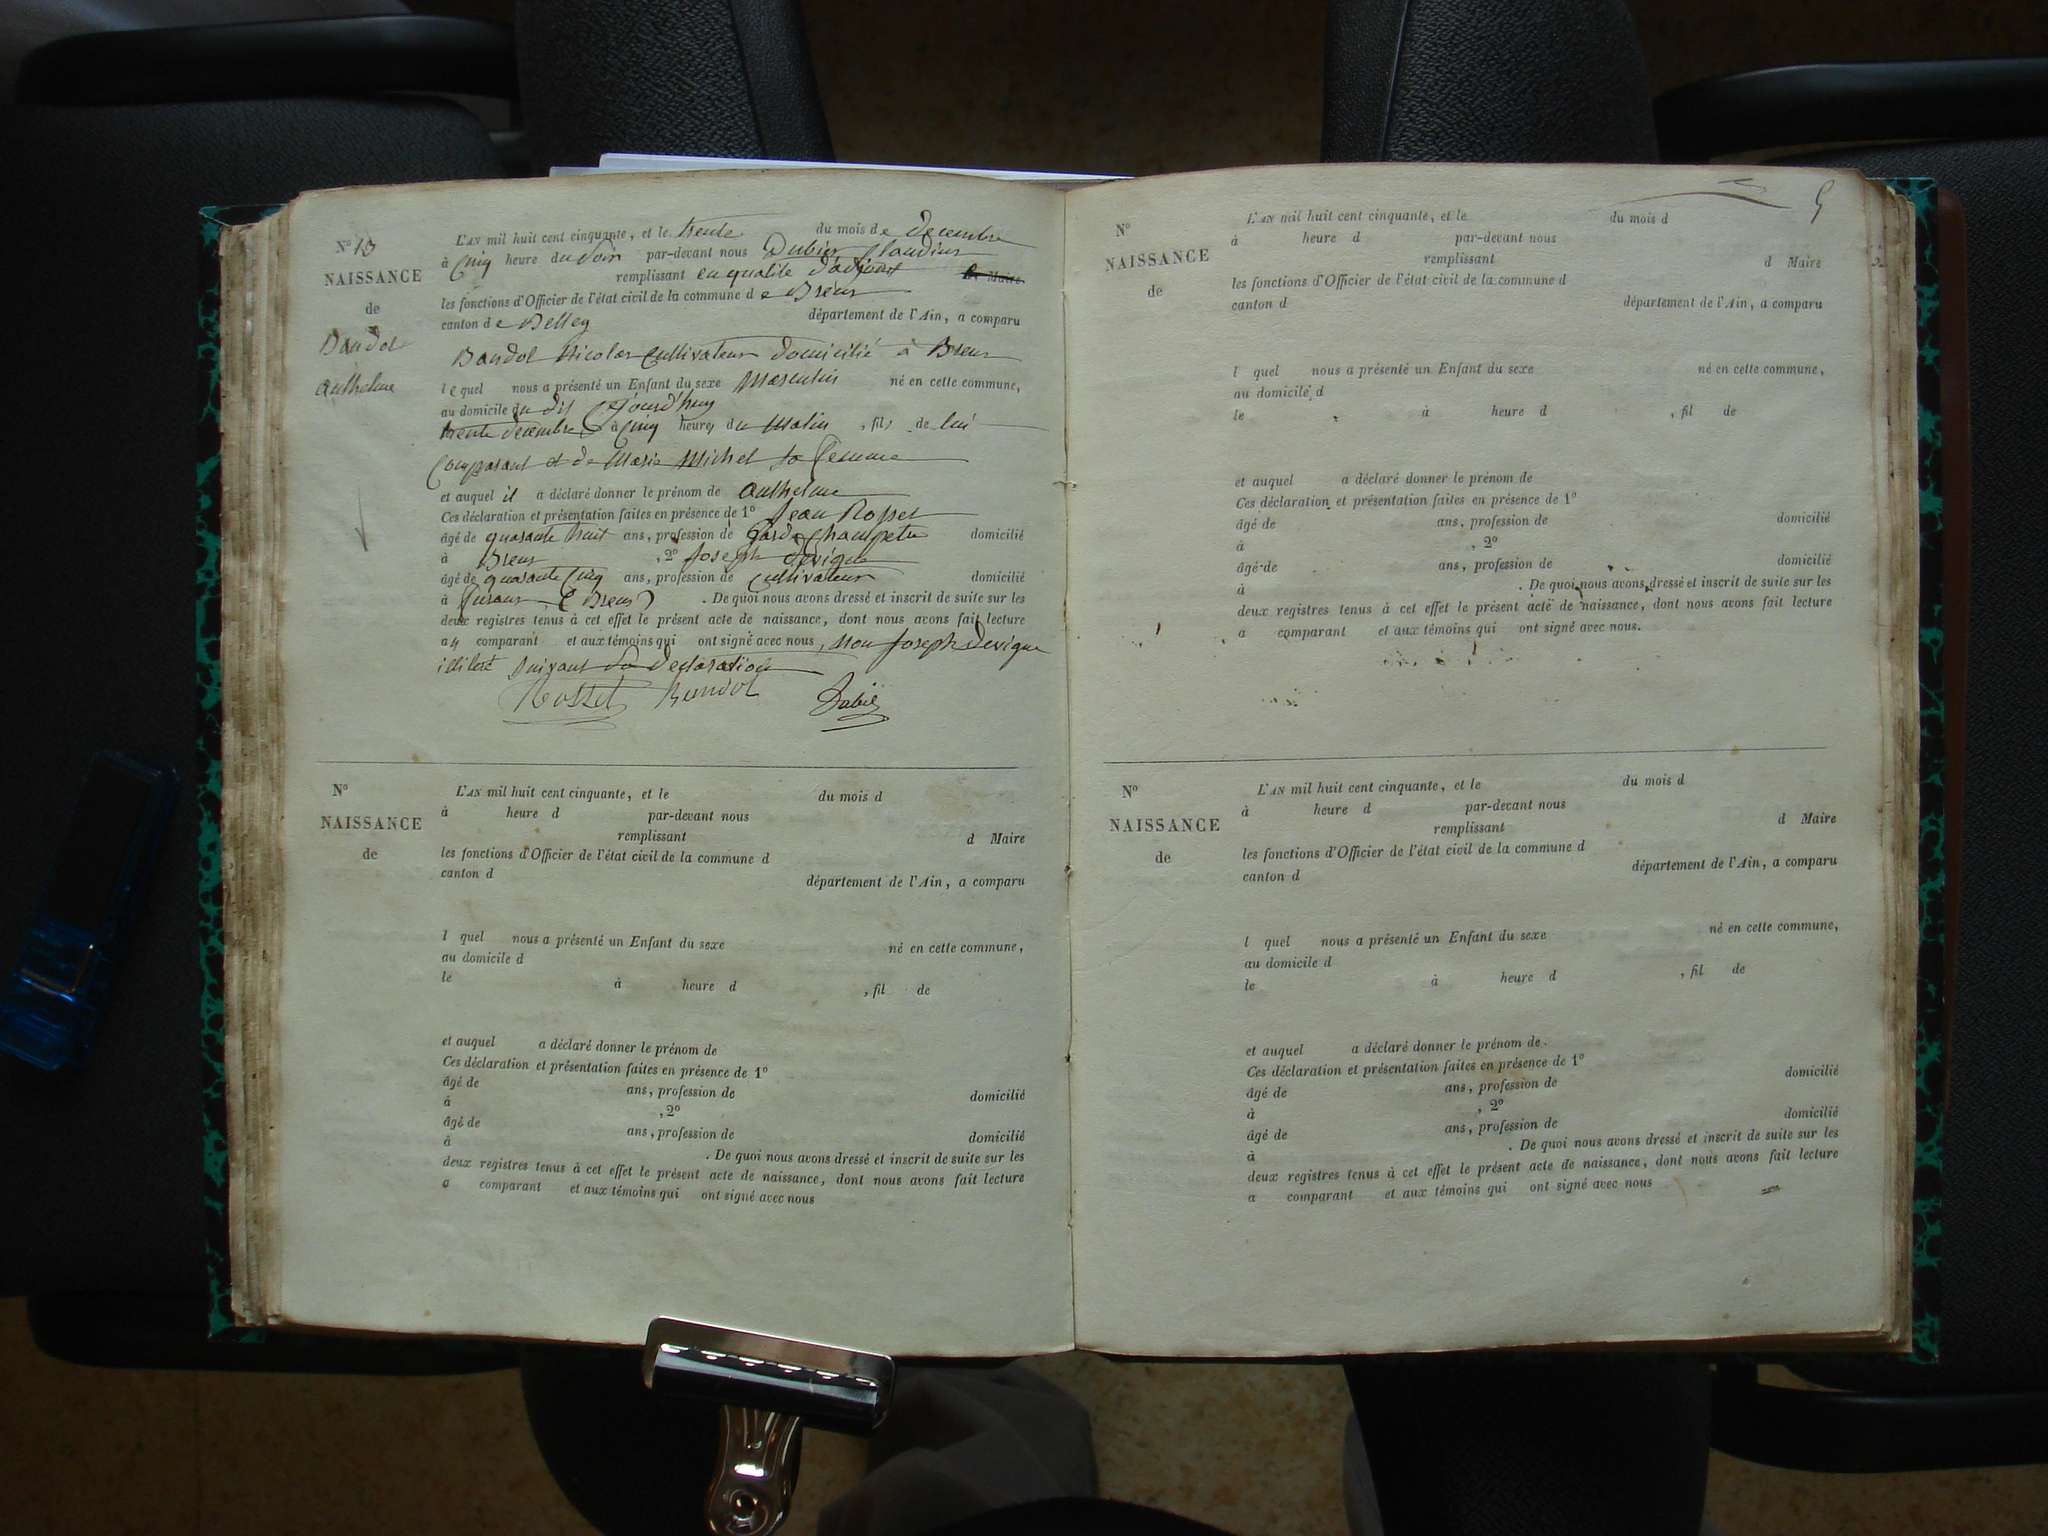 N° 13
NAISSANCE
de
Bandol
Anthelme
L'AN mil huit cent cinquante, et le trente du mois de décembre
à cinq heure du soir par-devant nous Dubier Claudius
remplissant en qualité d'adjoint Maire
les fonctions d'Officier de l'état civil de la commune de Brens
canton de Belley département de l'Ain, a comparu
Bandol Nicolas cultivateur domicilié à Brens
lequel nous a présenté un Enfant du sexe Masculin né en cette commune,
au domicile du dit cejourd'huy
trente décembre à cinq heures du Matin, fils de lui
comparant et de Marie Michel sa femme
et auquel il a déclaré donner le prénom de Anthelme
Ces déclaration et présentation faites en présence de 1° Jean Rosset
âgé de quarante huit ans, profession de Garde Champetre domicilié
à Brens, 2° Joseph Devigue
âgé de quarante cinq ans, profession de Cultivateur domicilié
à (Brens). De quoi nous avons dressé et inscrit de suite sur les
deux registres tenus à cet effet le présent acte de naissance, dont nous avons fait lecture
au comparant et aux témoins qui ont signé avec nous, non Joseph Devigue
suivant sa declaration
Rosset Bandol Dubier
N°
NAISSANCE
de
L'AN mil huit cent cinquante, et le du mois d
à heure d par-devant nous
remplissant d Maire
les fonctions d'Officier de l'état civil de la commune d
canton d département de l'Ain, a comparu
l quel nous a présenté un Enfant du sexe né en cette commune,
au domicile d
le à heure d , fil de
et auquel a déclaré donner le prénom de
Ces déclaration et présentation faites en présence de 1°
âgé de ans, profession de domicilié
à , 2°
âgé de ans, profession de domicilié
à . De quoi nous avons dressé et inscrit de suite sur les
deux registres tenus à cet effet le présent acte de naissance, dont nous avons fait lecture
a comparant et aux témoins qui ont signé avec nous
5
N°
NAISSANCE
de
L'AN mil huit cent cinquante, et le du mois d
à heure d par-devant nous
remplissant d Maire
les fonctions d'Officier de l'état civil de la commune d
canton d département de l'Ain, a comparu
l quel nous a présenté un Enfant du sexe né en cette commune,
au domicile d
le à heure d , fil de
et auquel a déclaré donner le prénom de
Ces déclaration et présentation faites en présence de 1°
âgé de ans, profession de domicilié
à , 2°
âgé de ans, profession de domicilié
à . De quoi nous avons dressé et inscrit de suite sur les
deux registres tenus à cet effet le présent acte de naissance, dont nous avons fait lecture
a comparant et aux témoins qui ont signé avec nous.
N°
NAISSANCE
de
L'AN mil huit cent cinquante, et le du mois d
à heure d par-devant nous
remplissant d Maire
les fonctions d'Officier de l'état civil de la commune d
canton d département de l'Ain, a comparu
l quel nous a présenté un Enfant du sexe né en cette commune,
au domicile d
le à heure d , fil de
et auquel a déclaré donner le prénom de
Ces déclaration et présentation faites en présence de 1°
âgé de ans, profession de domicilié
à , 2°
âgé de ans, profession de domicilié
à . De quoi nous avons dressé et inscrit de suite sur les
deux registres tenus à cet effet le présent acte de naissance, dont nous avons fait lecture
a comparant et aux témoins qui ont signé avec nous